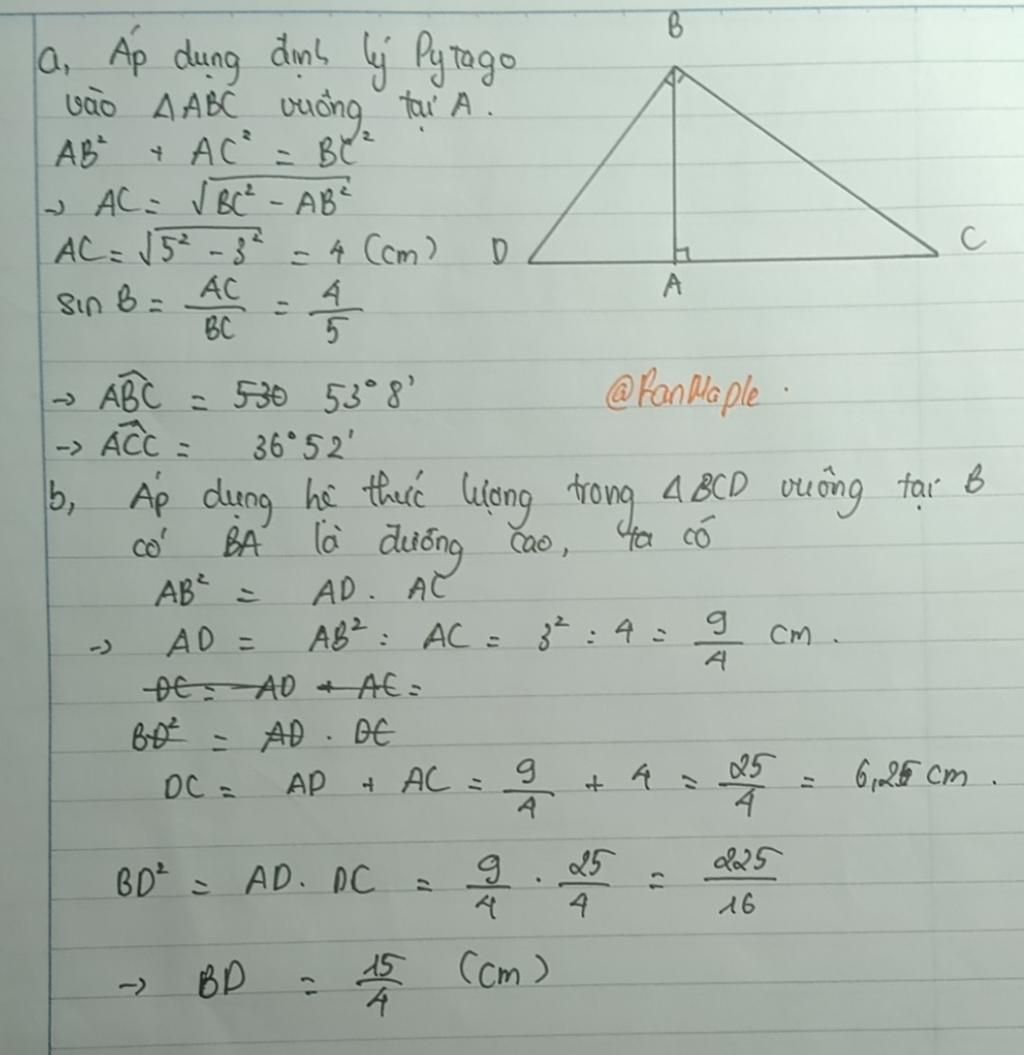 a, Áp dụng định lý Pytago
vào △ABC vuông tại A.
AB² + AC² = BC²
→ AC = √BC² - AB²
AC = √5² - 3² = 4 (cm)
sin B = AC/BC = 4/5
→ ABC = 530 53°8'
→ ACC = 36°52'
B
D
A
C
@PanMaple.
b, Áp dụng hệ thức lượng trong △BCD vuông tại B
có BA là đường cao, ta có
AB² = AD. AC
→ AD = AB² : AC = 3² : 4 = 9/4 cm.
DC = AD + AC =
BD² = AD. DC
DC = AD + AC = 9/4 + 4 = 25/4 = 6,25 cm.
BD² = AD. DC = 9/4 . 25/4 = 225/16
→ BD = 15/4 (cm)